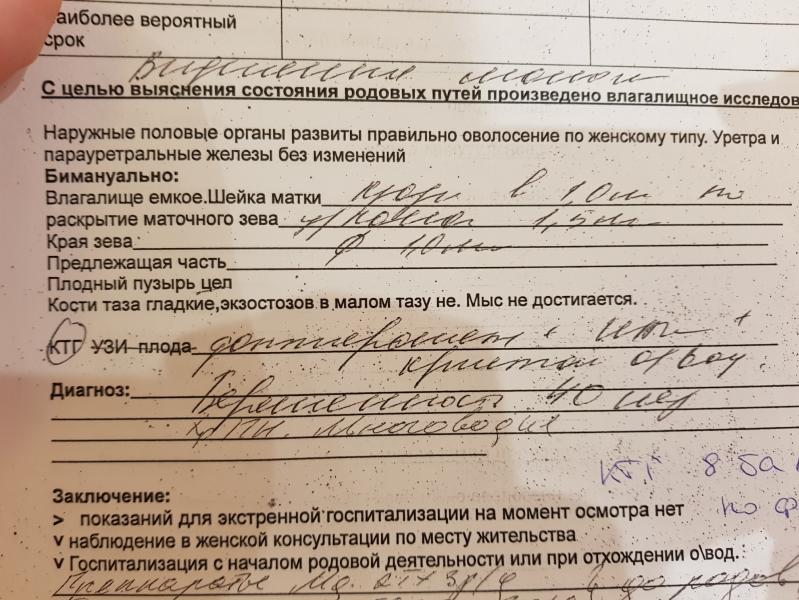 аиболее вероятный
срок
С целью выяснения состояния родовых путей произведено влагалищное исследов
Наружные половые органы развиты правильно оволосение по женскому типу. Уретра и
парауретральные железы без изменений
Бимануально:
Влагалище емкое.Шейка матки в 1,0см по
раскрытие маточного зева 1,5см
Края зева
Предлежащая часть
Плодный пузырь цел
Кости таза гладкие,экзостозов в малом тазу не. Мыс не достигается.
КТГ УЗИ плода-
Диагноз: Беременность 40 нед
Многоводие
КТГ 8 ба
по ф
Заключение:
> показаний для экстренной госпитализации на момент осмотра нет
v наблюдение в женской консультации по месту жительства
v Госпитализация с началом родовой деятельности или при отхождении о\вод.
Препараты Mg до родов